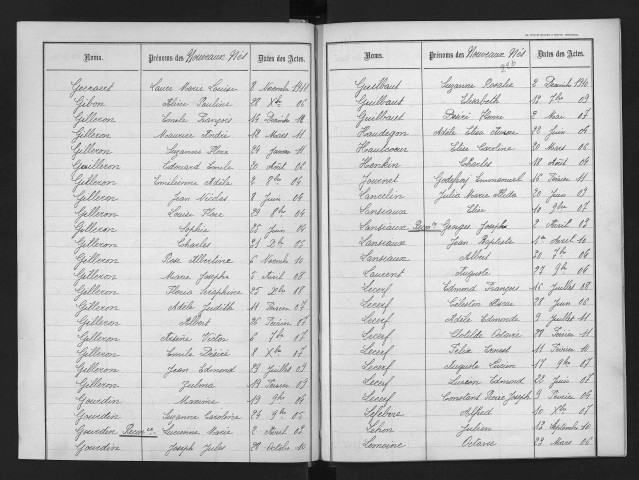 Noms. Prénoms des Nouveaux Nés Dates des Actes.
Laure Marie Louise 8 Novembre 1911
Gibon Aline Pauline 28 Xbre 06
Gilleron Emile François 14 Décembre 12
Gilleron Maurice André 18 Mars 11
Gilleron Suzanne Flore 24 Janvier 11
Guilleron Edouard Emile 20 Août 06
Gilleron Emilienne Adèle 2 8bre 04
Gilleron Jean Nicolas 8 Juin 04
Gilleron Louise Flore 29 8bre 04
Gilleron Sophie 25 Juin 04
Gilleron Charles 21 Xbre 05
Gilleron Rose Albertine 6 Novembre 10
Gilleron Marie Josepha 5 Avril 08
Gilleron Floris Séraphine 25 Xbre 08
Gilleron Adèle Judith 11 Février 07
Gilleron Albert 26 Février 07
Gilleron Arsène Victor 6 7bre 07
Gilleron Emile Désiré 8 Xbre 07
Gilleron Jean Edmond 23 Juillet 03
Gilleron Zulma 19 Février 03
Gourdin Maxime 19 9bre 04
Gourdin Suzanne Caroline 24 9bre 05
Gourdin Reconce Lucienne Marie 2 Avril 02
Gourdin Joseph Jules 28 Octobre 10
Noms. Prénoms des Nouveaux Nés Dates des Actes.
Guilbaut Suzanne Rosalie 2 Décembre 1910
Guilbaut Elisabeth 18 7bre 09
Guilbaut Désiré Henri 2 Mai 07
Haudegon Adèle Elisa 22 Juin 04
Hautcoeur Elise Caroline 20 Mars 06
Henkin Charles 18 Août 04
Journet Godefroy Emmanuel 16 Février 11
Lancelin Julia Marie 20 Juin 03
Lansiaux Elise 10 9bre 07
Lansiaux Reconce Georges Joseph 2 Avril 03
Lansiaux Jean Baptiste Avril 10
Lansiaux Albert 20 7bre 04
Laurent Auguste 27 9bre 04
Lecerf Edmond François 16 Juillet 08
Lecerf Célestin Oscar 28 Juin 06
Lecerf Adèle Edmonde 9 Juillet 11
Lecerf Clotilde Octavie 28 Février 11
Lecerf Félix Ernest 11 Février 10
Lecerf Auguste Lucien 17 9bre 07
Lecerf Lucien Edmond 20 Juin 07
Lecerf Constant Pierre Joseph 9 Février 04
Lefebvre Alfred 10 Xbre 07
Julien 12 Septembre 10
Lemoine Octave 23 Mars 06